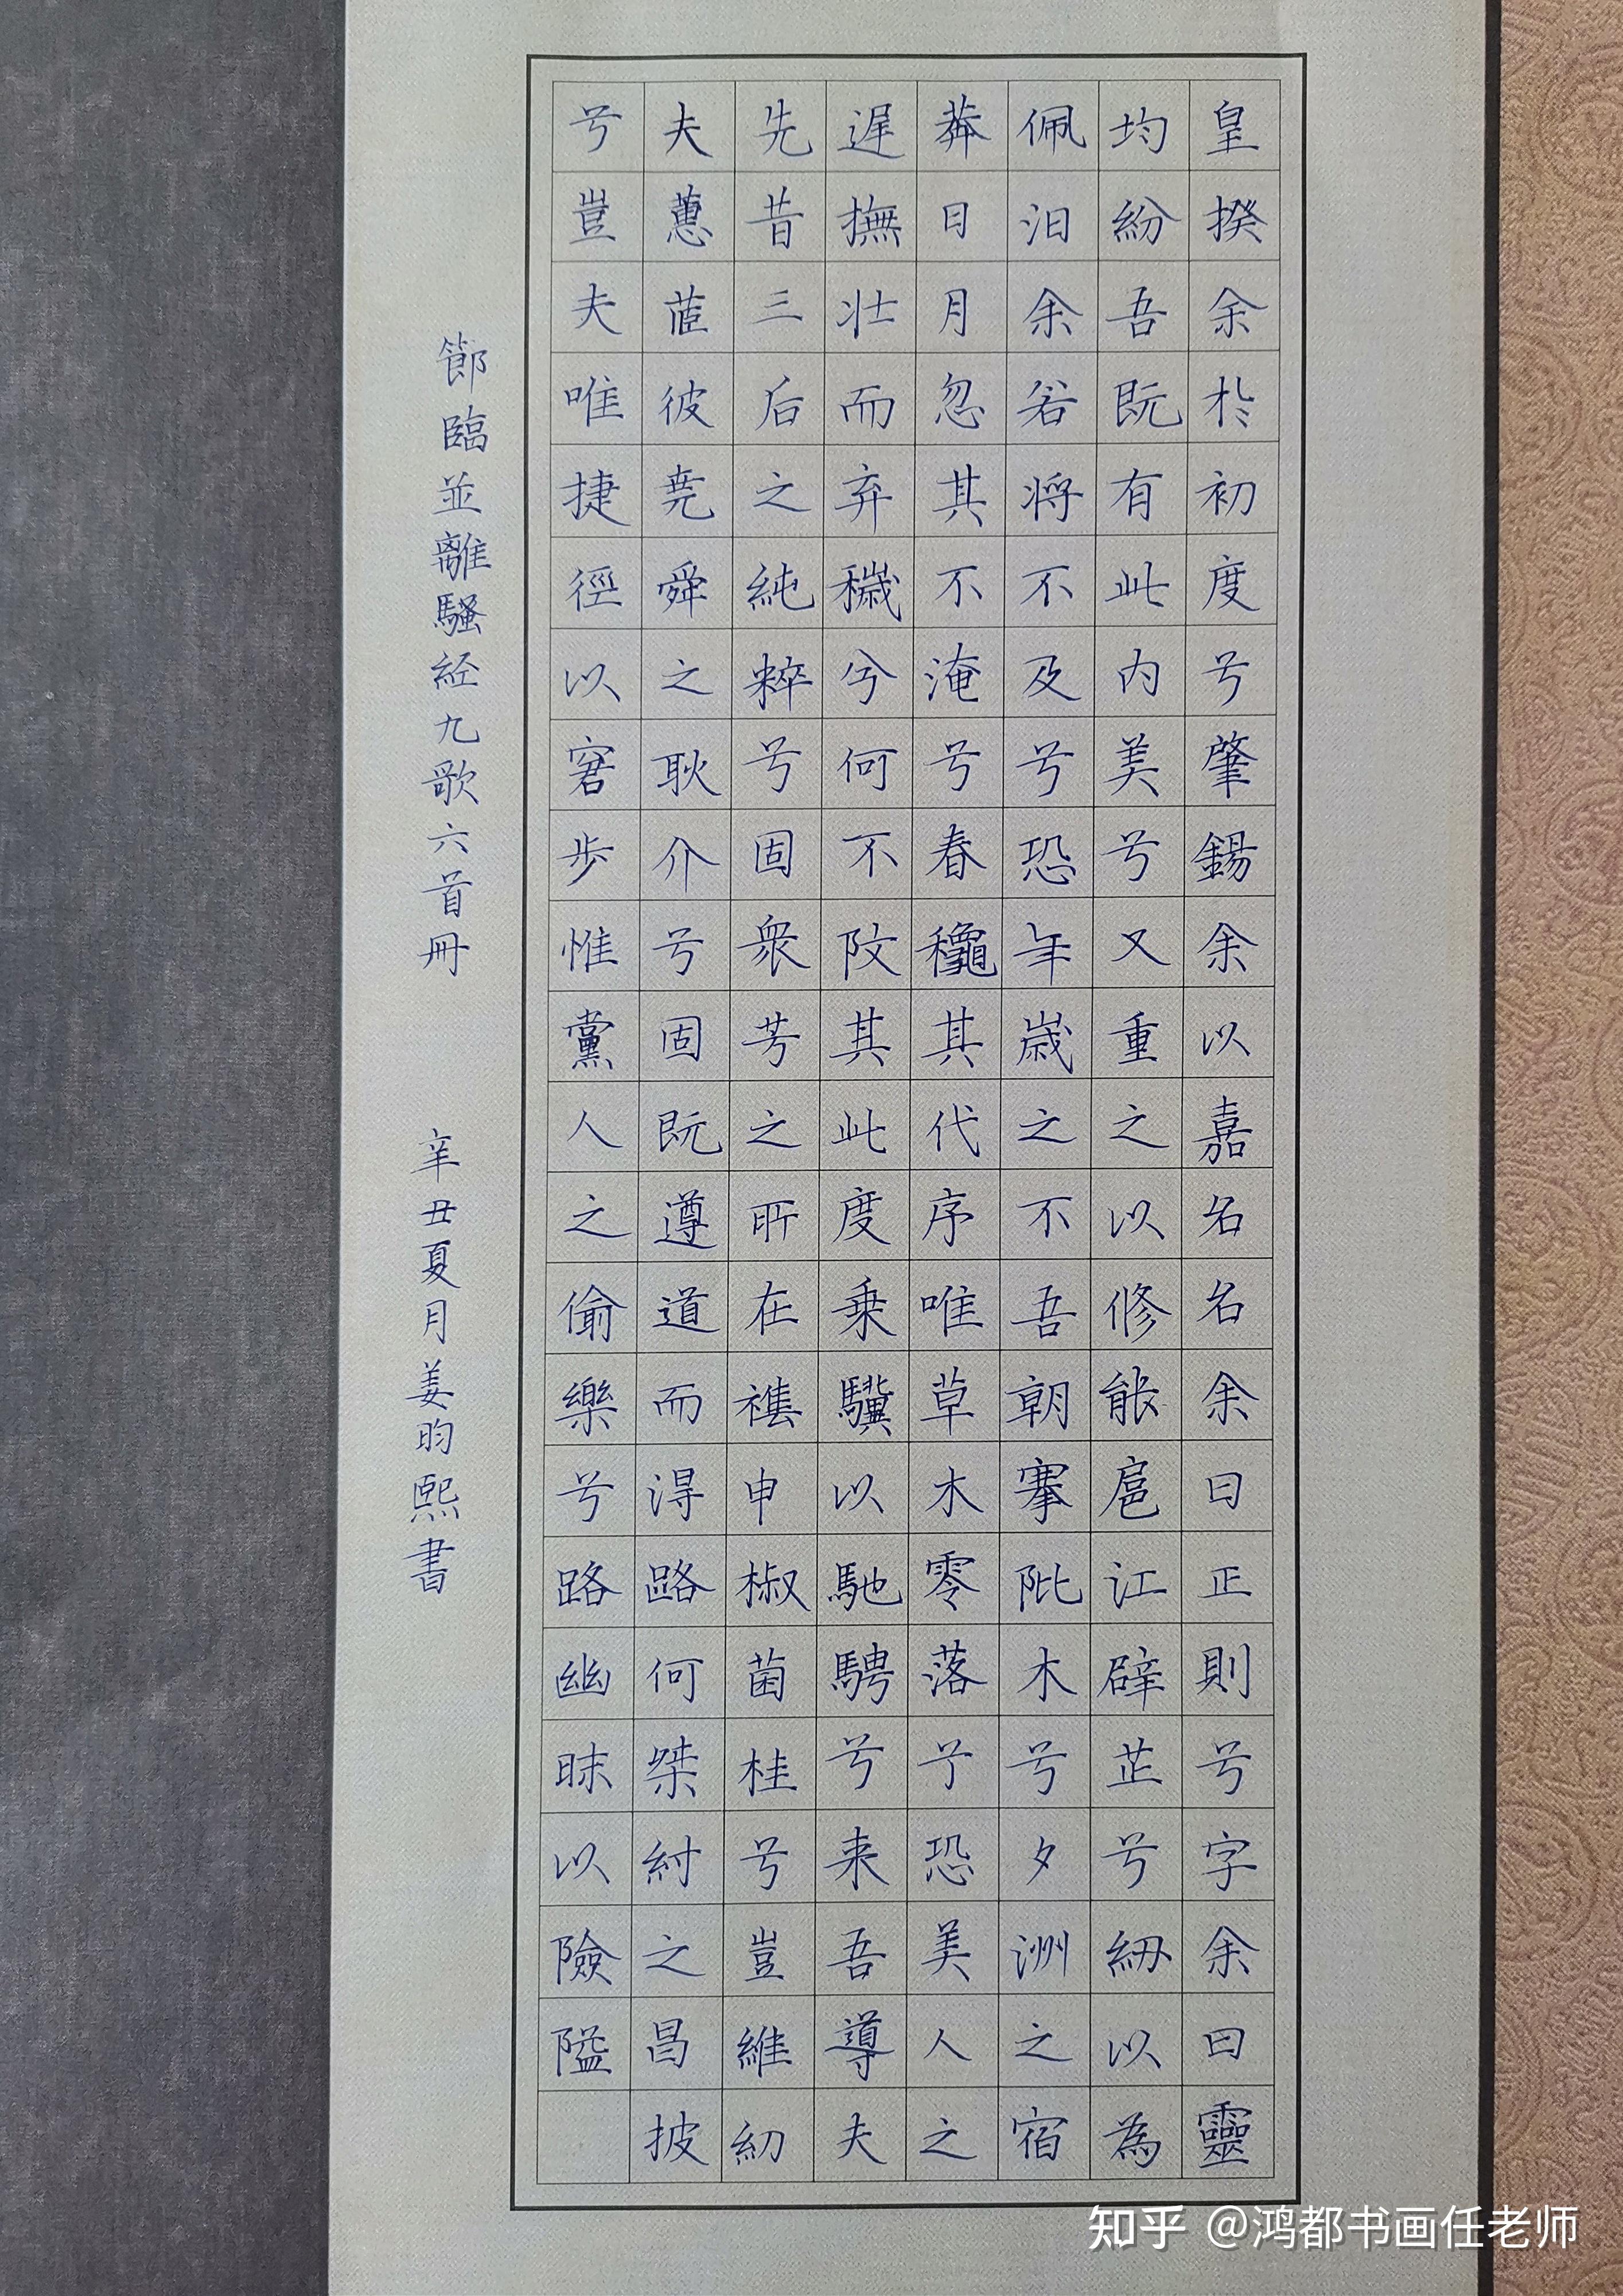 皇揆余於初度兮肇錫余以嘉名名余曰正則兮字余曰靈
均紛吾既有此内美兮又重之以修能扈江辟芷兮紉以為
佩汩余若将不及兮恐年歲之不吾朝搴阰木兮夕洲之宿
莽日月忽其不淹兮春穐其代序唯草木零落兮恐美人之
遅撫壮而弃穢兮何不改其此度乗驥以馳騁兮来吾導夫
先昔三后之純粹兮固衆芳之所在襍申椒菌桂兮豈維紉
夫蕙茝彼尭舜之耿介兮固既遵道而淂路何桀紂之昌披
兮豈夫唯捷徑以窘步惟黨人之偷樂兮路幽昧以險隘
節臨並離騷経九歌六首冊 辛丑夏月姜昀熙書
知乎 @鸿都书画任老师